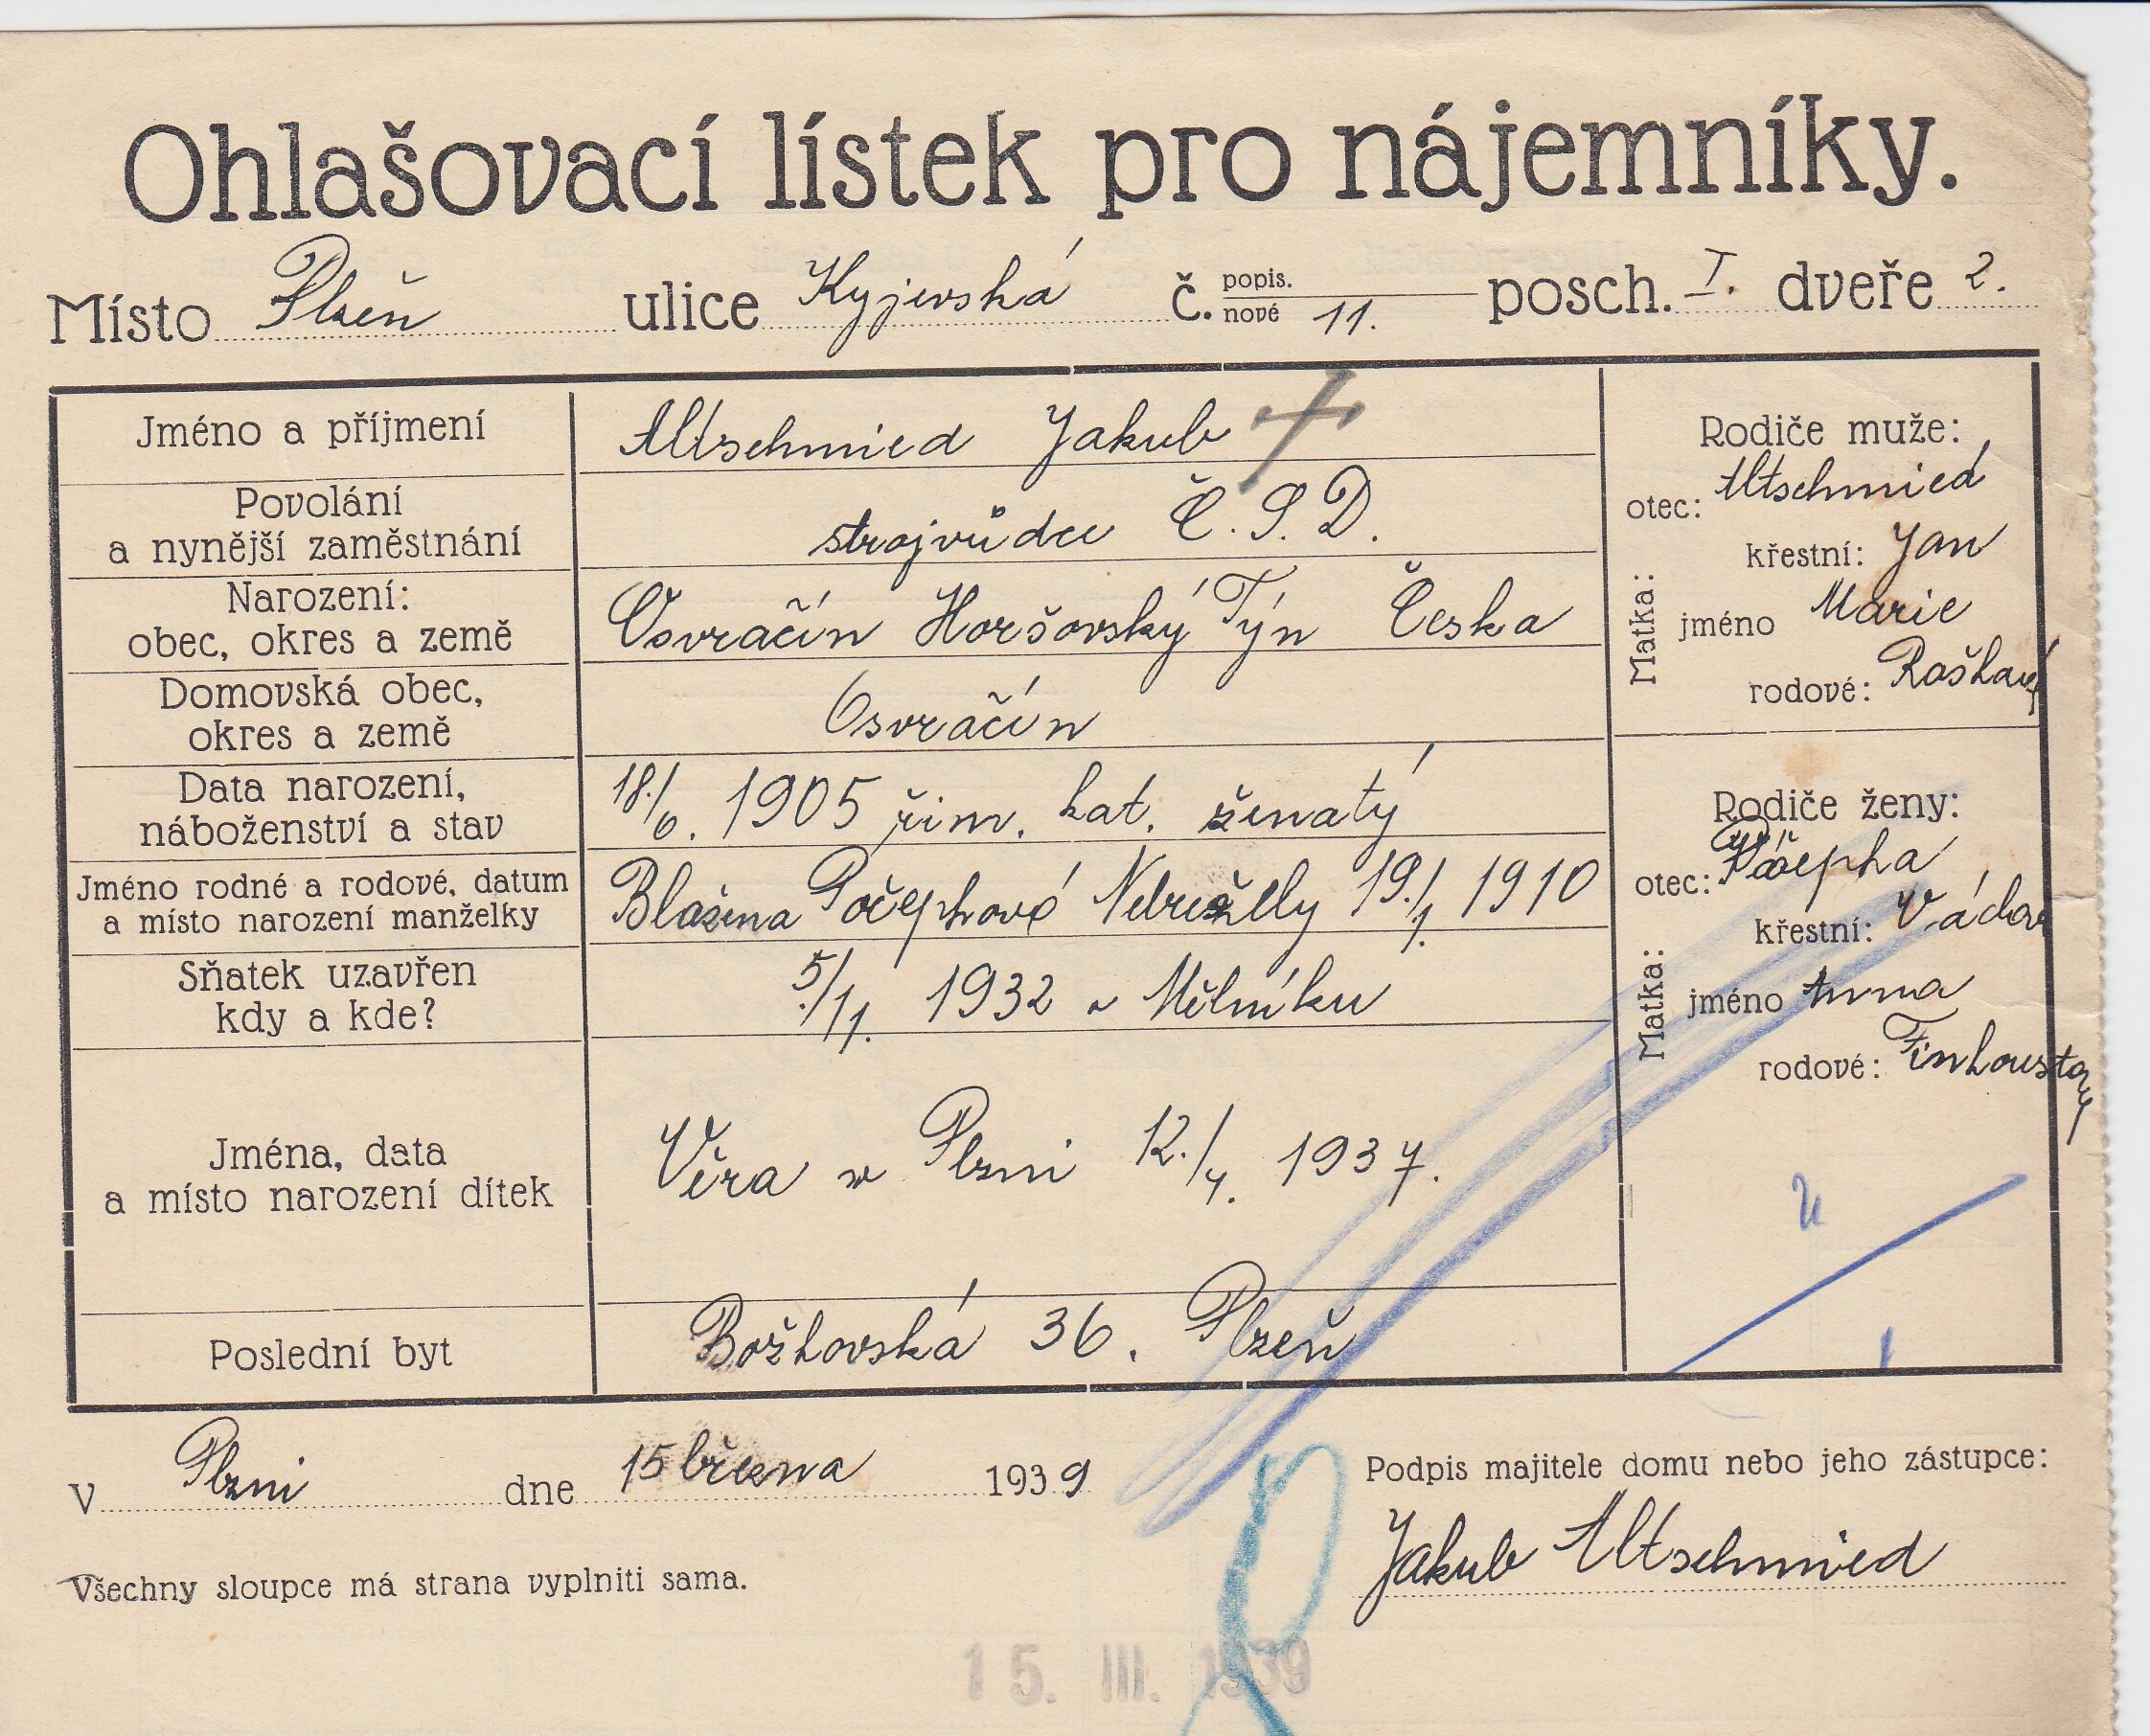 Ohlašovací lístek pro nájemníky.
Místo Plzeň ulice Kyjevská č. popis. nové 11. posch. I. dveře 2.
Jméno a příjmení Altschmied Jakub
Povolání
a nynější zaměstnání strojvůdce Č. S. D.
Narození:
obec, okres a země Osvračín Horšovský Týn Česka
Domovská obec,
okres a země Osvračín
Data narození,
náboženství a stav 18./6. 1905 řim. kat. ženatý
Jméno rodné a rodové, datum
a místo narození manželky Blažena Počephová 19./1. 1910
Sňatek uzavřen
kdy a kde? 5./11. 1932 v Mělníku
Jména, data
a místo narození dítek Věra v Plzni 12./4. 1937.
Poslední byt Božkovská 36. Plzeň
Rodiče muže:
otec: Altschmied
křestní: Jan
Matka:
jméno Marie
rodové:
Rodiče ženy:
otec: Počepha
křestní: Václav
Matka:
jméno Anna
rodové:
V Plzni dne 15 března 1939
Podpis majitele domu nebo jeho zástupce:
Jakub Altschmied
Všechny sloupce má strana vyplniti sama.
15. III. 1939